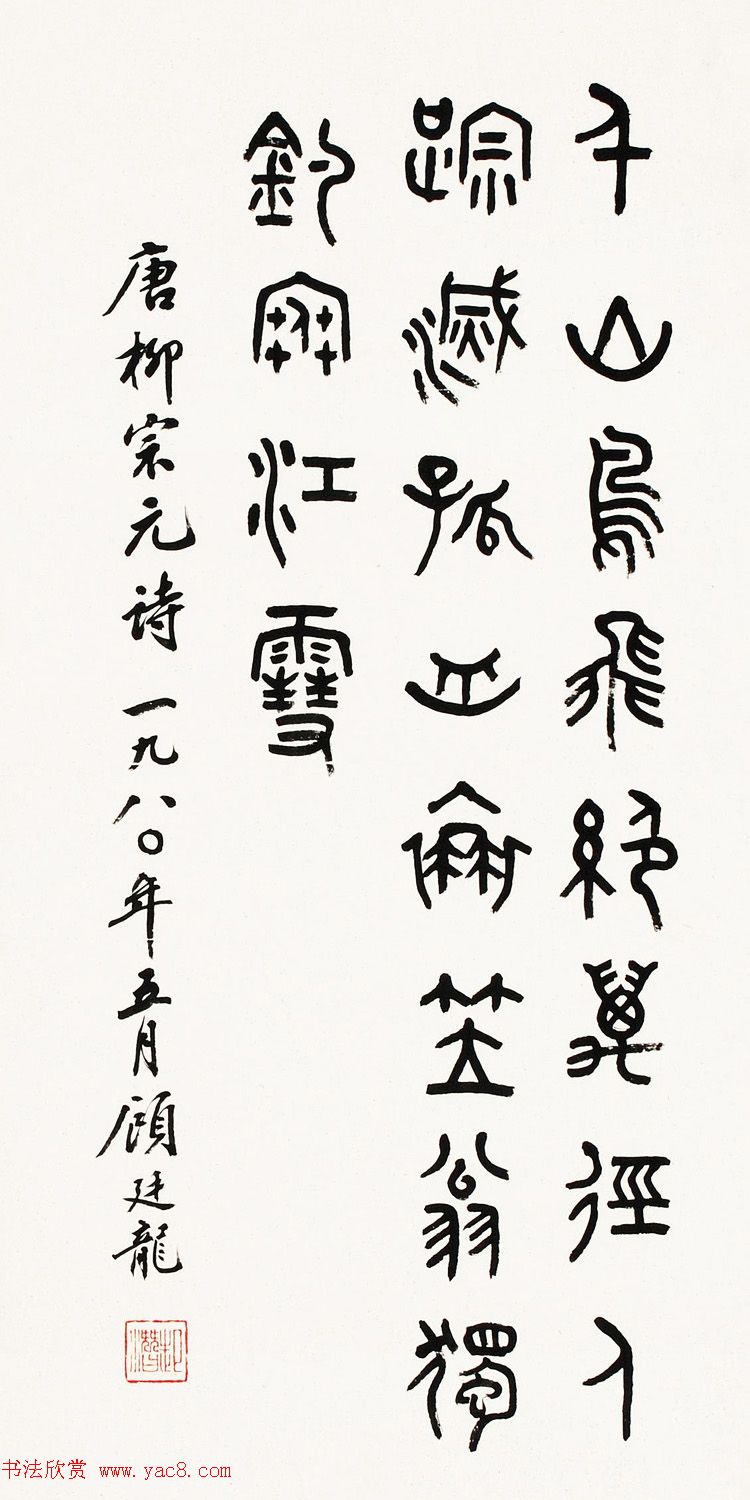 千山鳥飛絕萬徑人
踪滅孤舟蓑笠翁獨
釣寒江雪
唐柳宗元詩 一九八〇年五月顧廷龍
起潛
书法欣赏 www.yac8.com